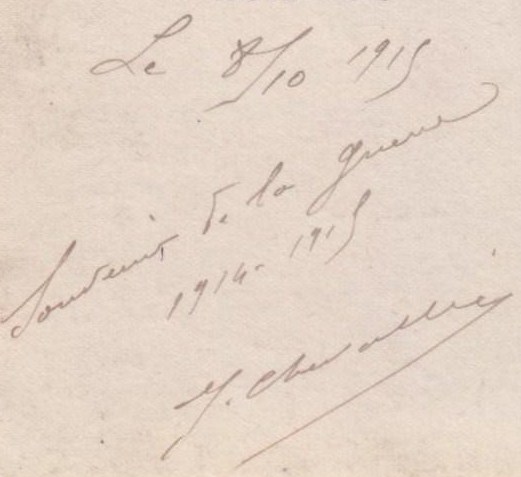 Le 8/10 1915
Souvenir de la guerre
1914-1915